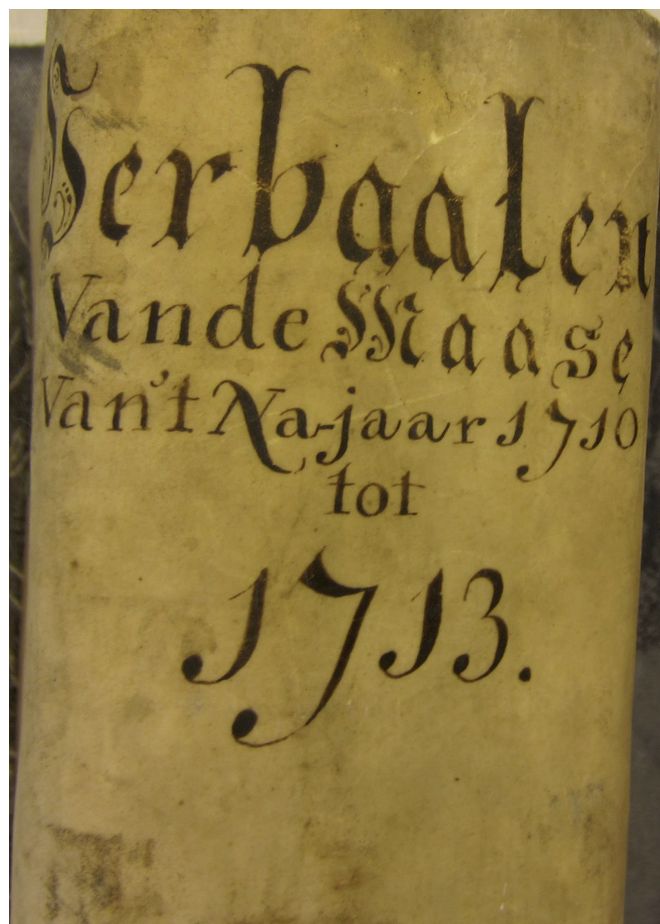 Verbaalen
Vande Maase
Van't Na-jaar 1710
tot
1713.